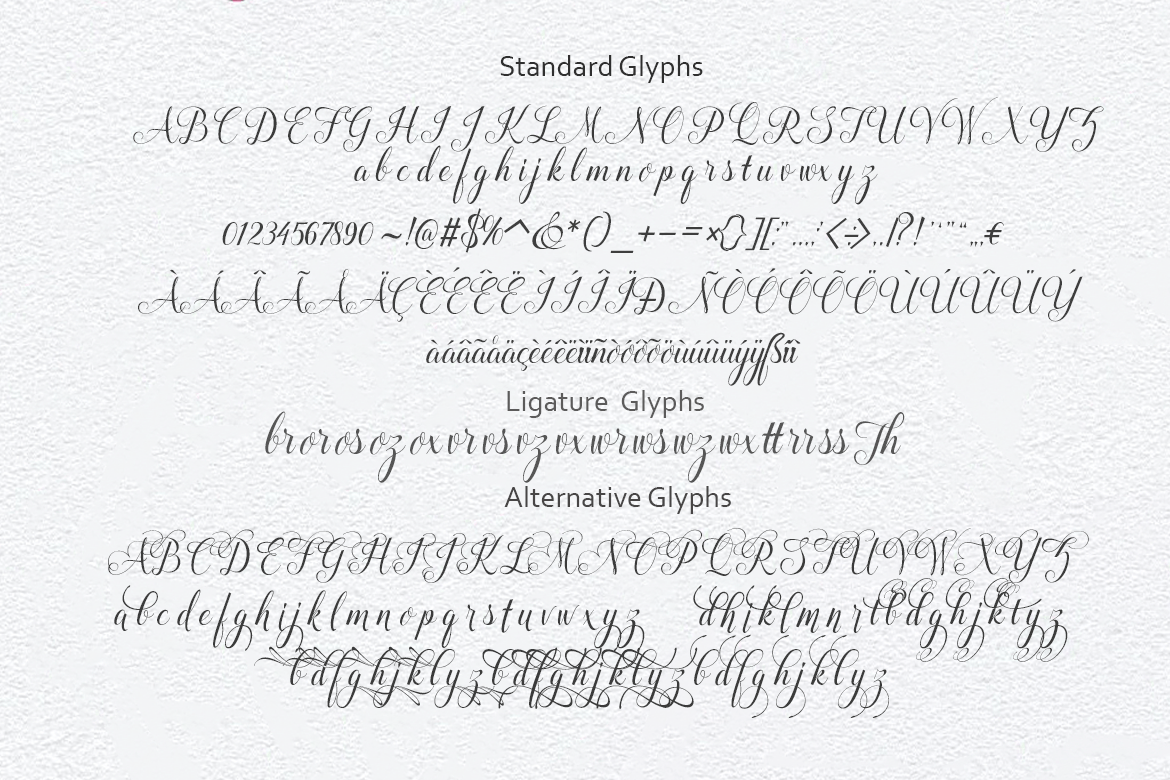 Standard Glyphs
ABCDEFGHIJKLMNOPQRSTUVWXYZ
abcdefghijklmnopqrstuvwxyz
01234567890~!@#$%^&*()_+-=×{}][:"...,;'<÷>,.|?!''"“„,€
ÀÁÂÃÅÄÇÈÉÊËÌÍÎÏÐÑÒÓÔÕÖÙÚÛÜÝ
àáâãåäçèéêëìïñòóôõöùúûüýÿßîì
Ligature Glyphs
brorosozoxvrvsvzvxwrwswzwxttrrssTh
Alternative Glyphs
ABCDEFGHIJKLMNOPQRSTUVWXYZ
abcdefghijklmnopqrstuvwxyz dhiklmnrtbdghjktyz
bdfghjklyzbdfghjklyzbdfghjklyz